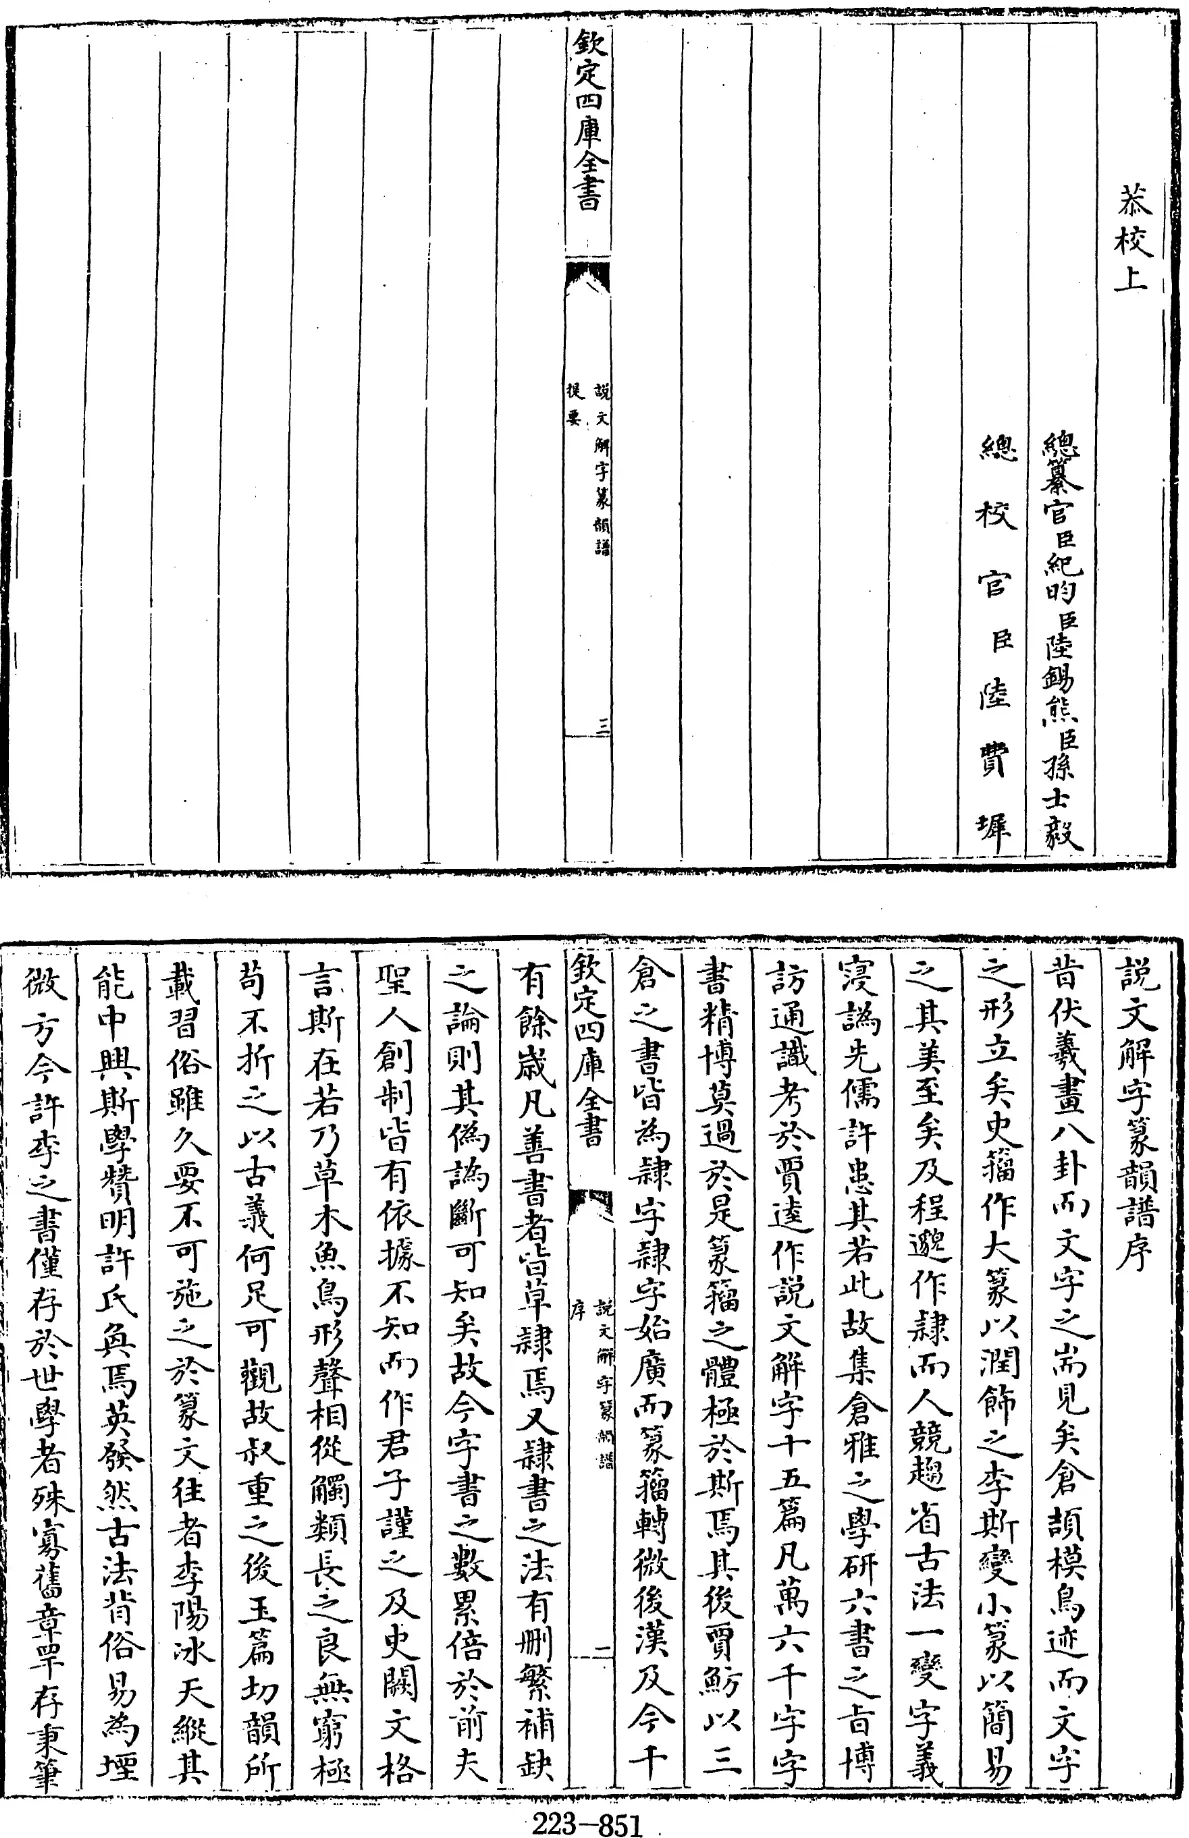 恭校上
總纂官臣紀昀臣陸錫熊臣孫士毅
總校官臣陸費墀
欽定四庫全書
說文解字篆韻譜
提要
三
說文解字篆韻譜序
昔伏羲畫八卦而文字之耑見矣倉頡模鳥迹而文字
之形立矣史籀作大篆以潤飾之李斯變小篆以簡易
之其美至矣及程邈作隷而人競趨省古法一變字義
寖譌先儒許慎患其若此故集倉雅之學研六書之旨博
訪通識考於賈逵作説文解字十五篇凡萬六千字字
書精博莫過於是篆籀之體極於斯焉其後賈魴以三
倉之書皆為隷字隷字始廣而篆籀轉微後漢及今千
欽定四庫全書
說文解字篆韻譜
序
一
有餘歲凡善書者皆草隷焉又隷書之法有刪繁補缺
之論則其僞譌斷可知矣故今字書之數累倍於前夫
聖人創制皆有依據不知而作君子謹之及史闕文格
言斯在若乃草木魚鳥形聲相從觸類長之良無窮極
苟不折之以古義何足可觀故叔重之後玉篇切韻所
載習俗雖久要不可施之於篆文往者李陽冰天縱其
能中興斯學贊明許氏奐焉英發然古法背俗易為堙
微方今許李之書僅存於世學者殊寡舊章罕存秉筆
223-851